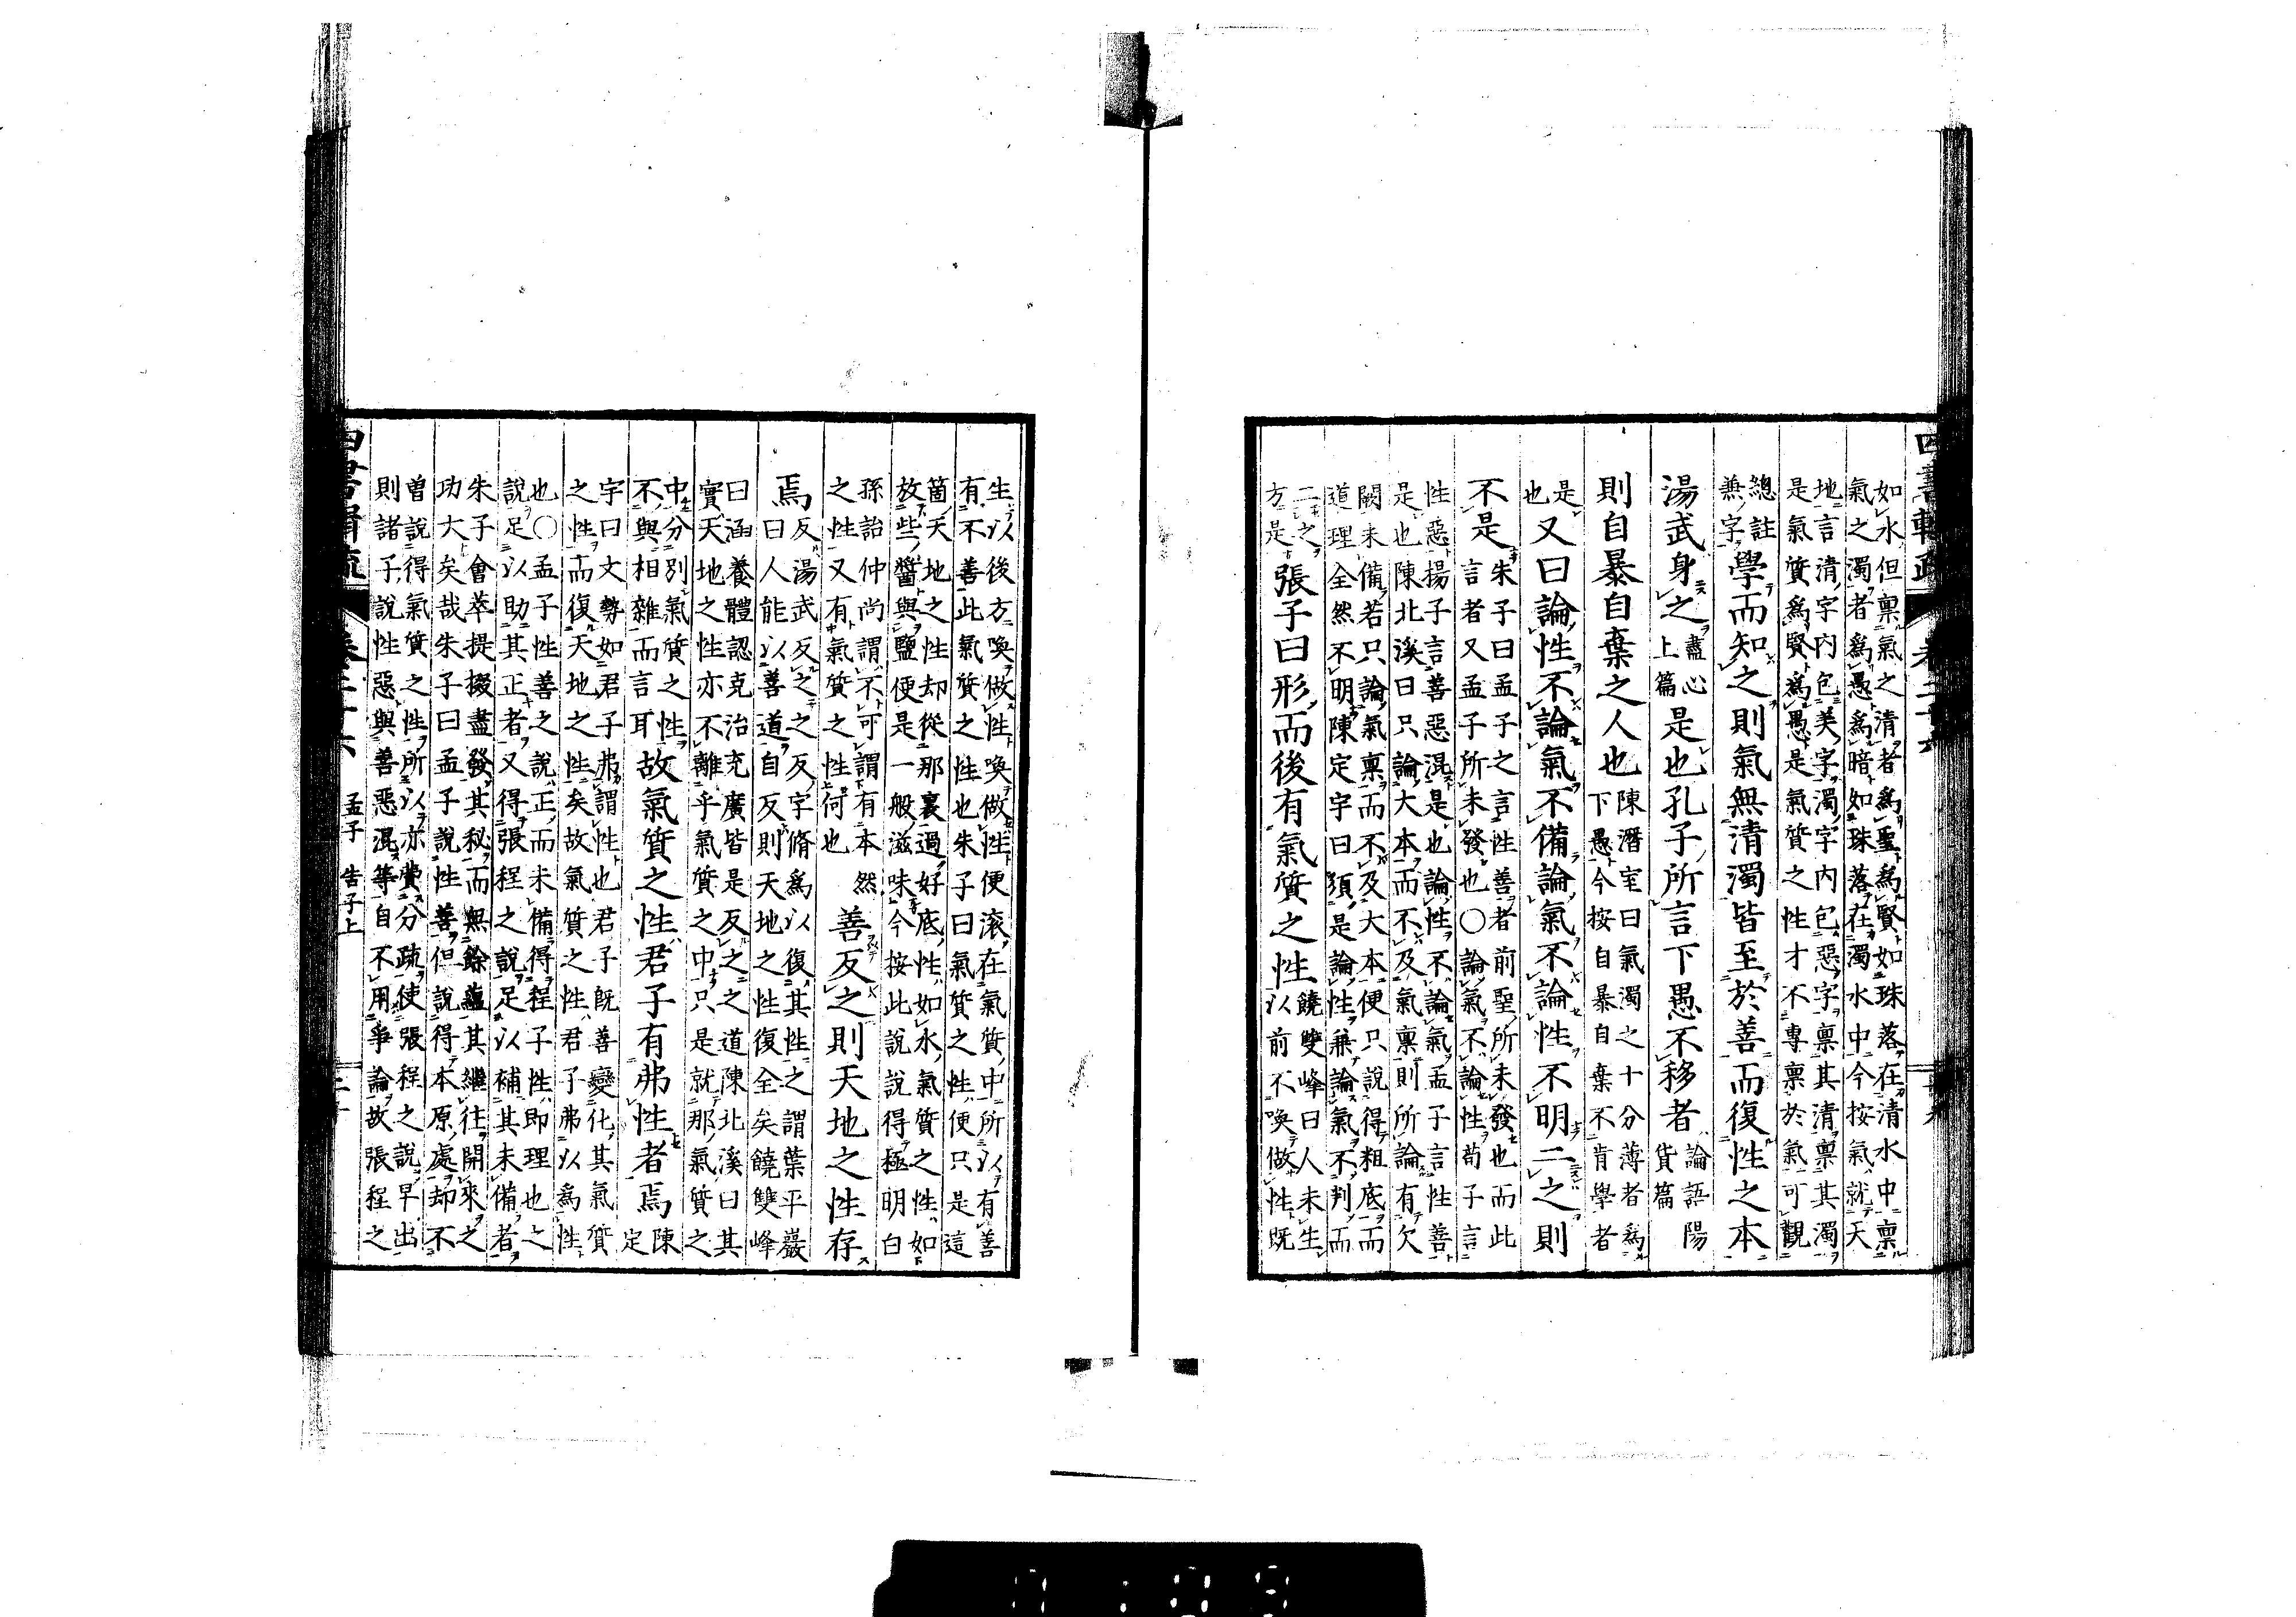 如水但稟氣之清者爲聖爲賢如珠落在清水中稟
氣之濁者爲愚爲暗如珠落在濁水中今按氣就天
地言清字內包美字濁字內包惡字稟其清稟其濁
是氣質爲賢爲愚是氣質之性才不專稟於氣可觀
總註
兼字學而知之則氣無清濁皆至於善而復性之本
湯武身之盡心
上篇是也孔子所言下愚不移者論語陽
貨篇
則自暴自棄之人也陳潛室曰氣濁之十分薄者爲
下愚今按自暴自棄不肯學者
是
也又曰論性不論氣不備論氣不論性不明二之則
不是朱子曰孟子之言性善者前聖所未發也而此
言者又孟子所未發也〇論氣不論性荀子言
性惡揚子言善惡混是也論性不論氣孟子言性善
是也陳北溪曰只論大本而不及氣稟則所論有欠
闕未備若只論氣稟而不及大本便只說得粗底而
道理全然不明陳定宇曰須是論性兼論氣不判而
二之
方是張子曰形而後有氣質之性饒雙峰曰人未生
以前不喚做性既
生以後方喚做性喚做性便滾在氣質中所以有善
有不善此氣質之性也朱子曰氣質之性便只是這
箇天地之性却從那裏過好底性如水氣質之性如
放些醬與鹽便是一般滋味今按此說說得極明白
孫詒仲尚謂不可謂有本然
之性又有氣質之性何也善反之則天地之性存
焉反湯武反之之反字脩爲以復其性之謂葉平巖
曰人能以善道自反則天地之性復全矣饒雙峰
曰涵養體認克治充廣皆是反之之道陳北溪曰其
實天地之性亦不離乎氣質之中只是就那氣質之
中分別氣質之性
不與相雜而言耳故氣質之性君子有弗性者焉陳
定
字曰文勢如君子弗謂性也君子既善變化其氣質
之性而復天地之性矣故氣質之性君子弗以爲性
也〇孟子性善之說正而未備得程子性即理也之
說足以助其正者又得張程之說足以補其未備者
朱子會萃提掇盡發其秘而無餘蘊其繼往開來之
功大矣哉朱子曰孟子說性善但說得本原處却不
曾說得氣質之性所以亦費分疏使張程之說早出
則諸子說性惡與善惡混等自不用爭論故張程之
孟子 告子上